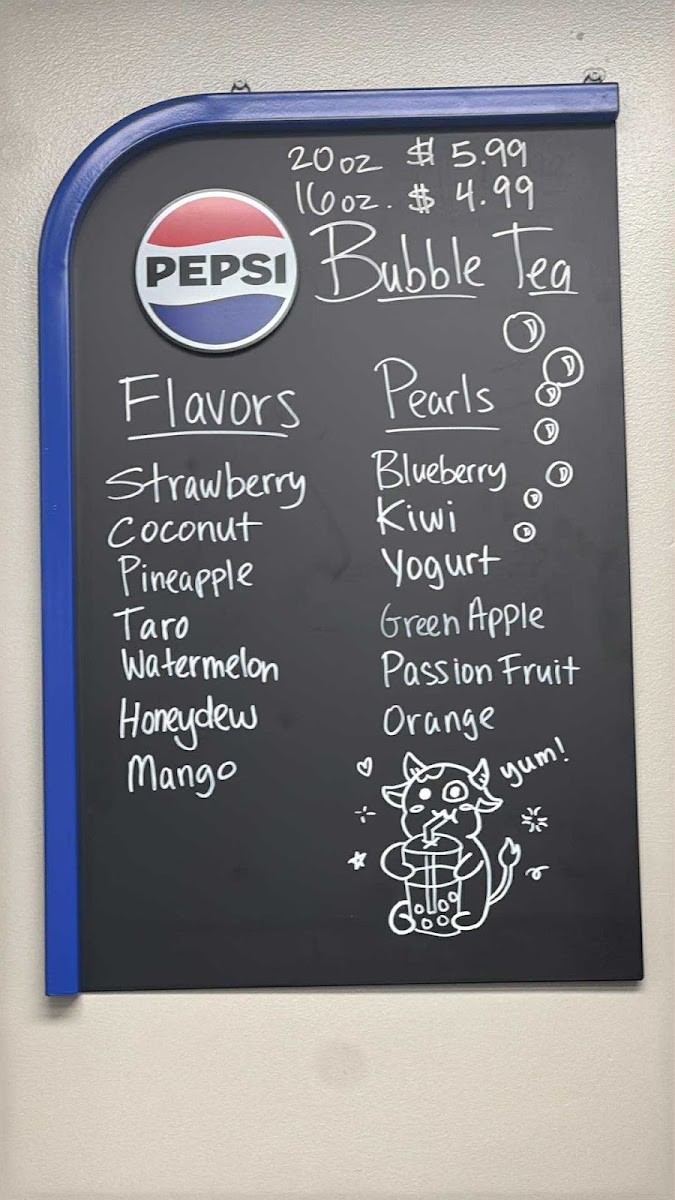 20 oz $ 5.99
16 oz. $ 4.99
PEPSI
Bubble Tea
Flavors
Strawberry
Coconut
Pineapple
Taro
Watermelon
Honeydew
Mango
Pearls
Blueberry
Kiwi
Yogurt
Green Apple
Passion Fruit
Orange
yum!